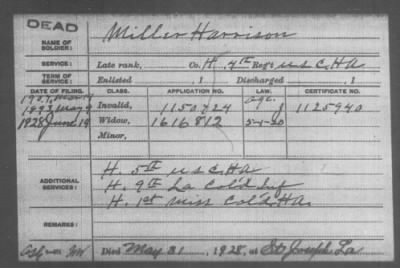 DEAD
NAME OF SOLDIER: Miller Harrison
SERVICE: Late rank, Co. H, 4th Reg't U.S.C.H.A.
TERM OF SERVICE: Enlisted , 1 Discharged , 1
DATE OF FILING. CLASS. APPLICATION NO. LAW. CERTIFICATE NO.
Age.
1893 May Invalid, 1150424 1125940
1928 June 19 Widow, 1616812 5-1-20
Minor,
ADDITIONAL SERVICES: H. 5th U.S.C.H.A.
H. 9th La Col'd Inf
H. 1st Miss Col'd H.A.
REMARKS:
Died May 31, 1928, at St Joseph La